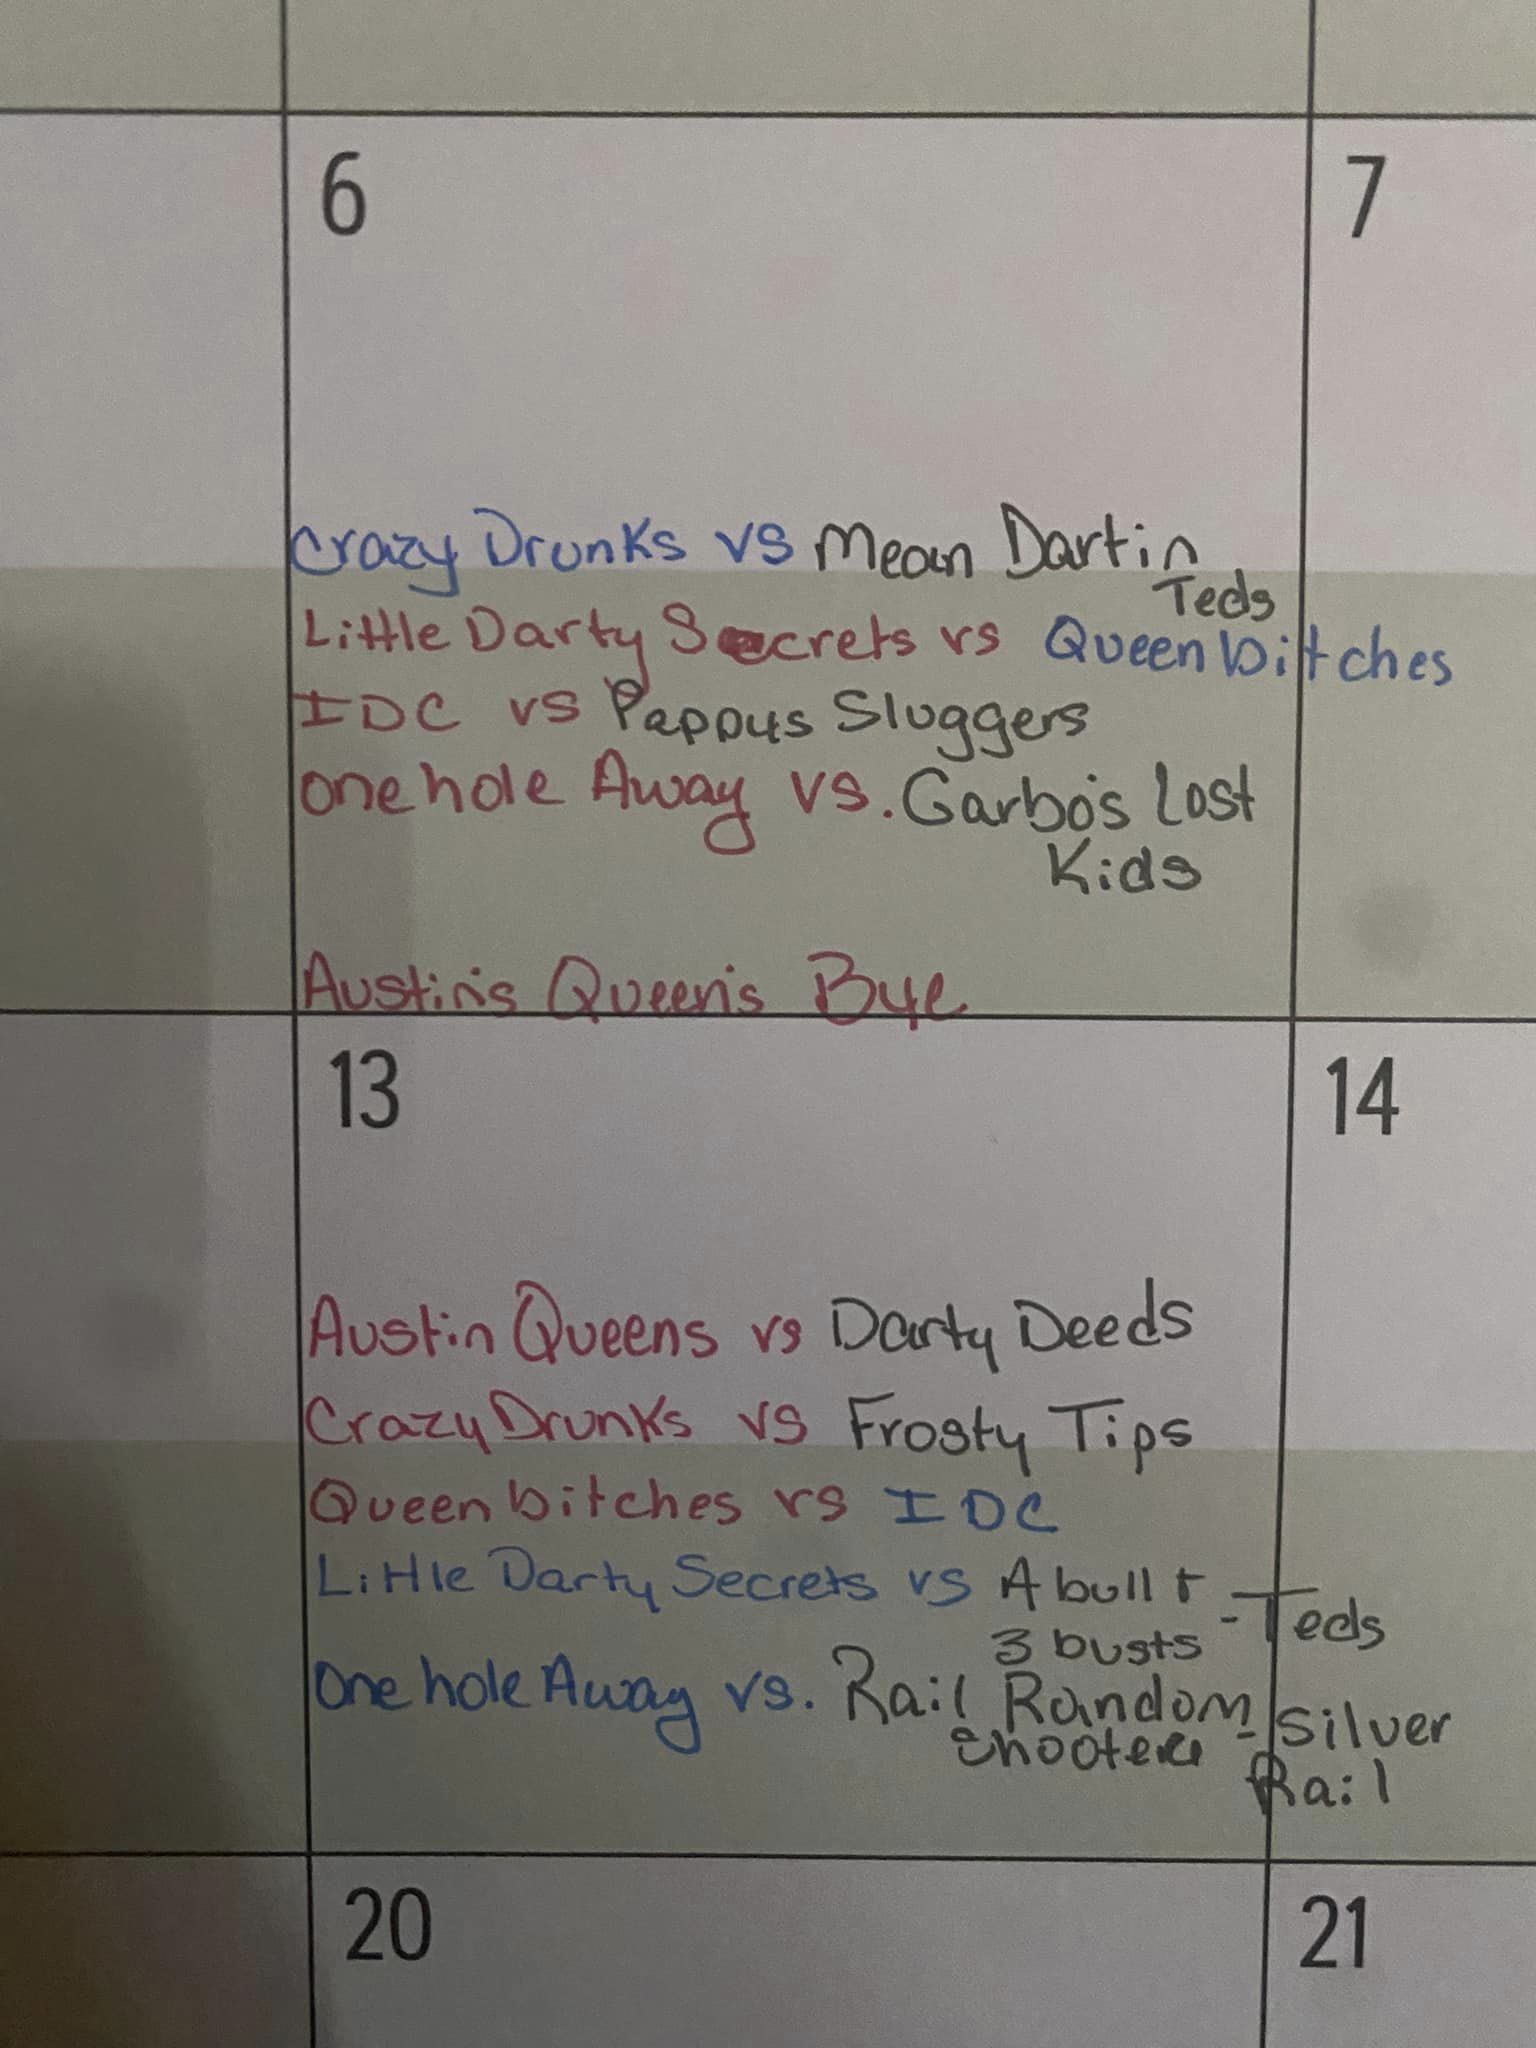 6
7
Crazy Drunks vs Mean Dartin
Teds
Little Darty Secrets vs Queen bitches
IDC vs Pappys Sluggers
One hole Away vs. Garbo's Lost
Kids
Austin's Queen's Bye
13
14
Austin Queens vs Darty Deeds
Crazy Drunks vs Frosty Tips
Queen bitches vs IDC
Little Darty Secrets vs A bull +
3 busts - Teds
One hole Away vs. Rail Random
- Silver
Rail
20
21